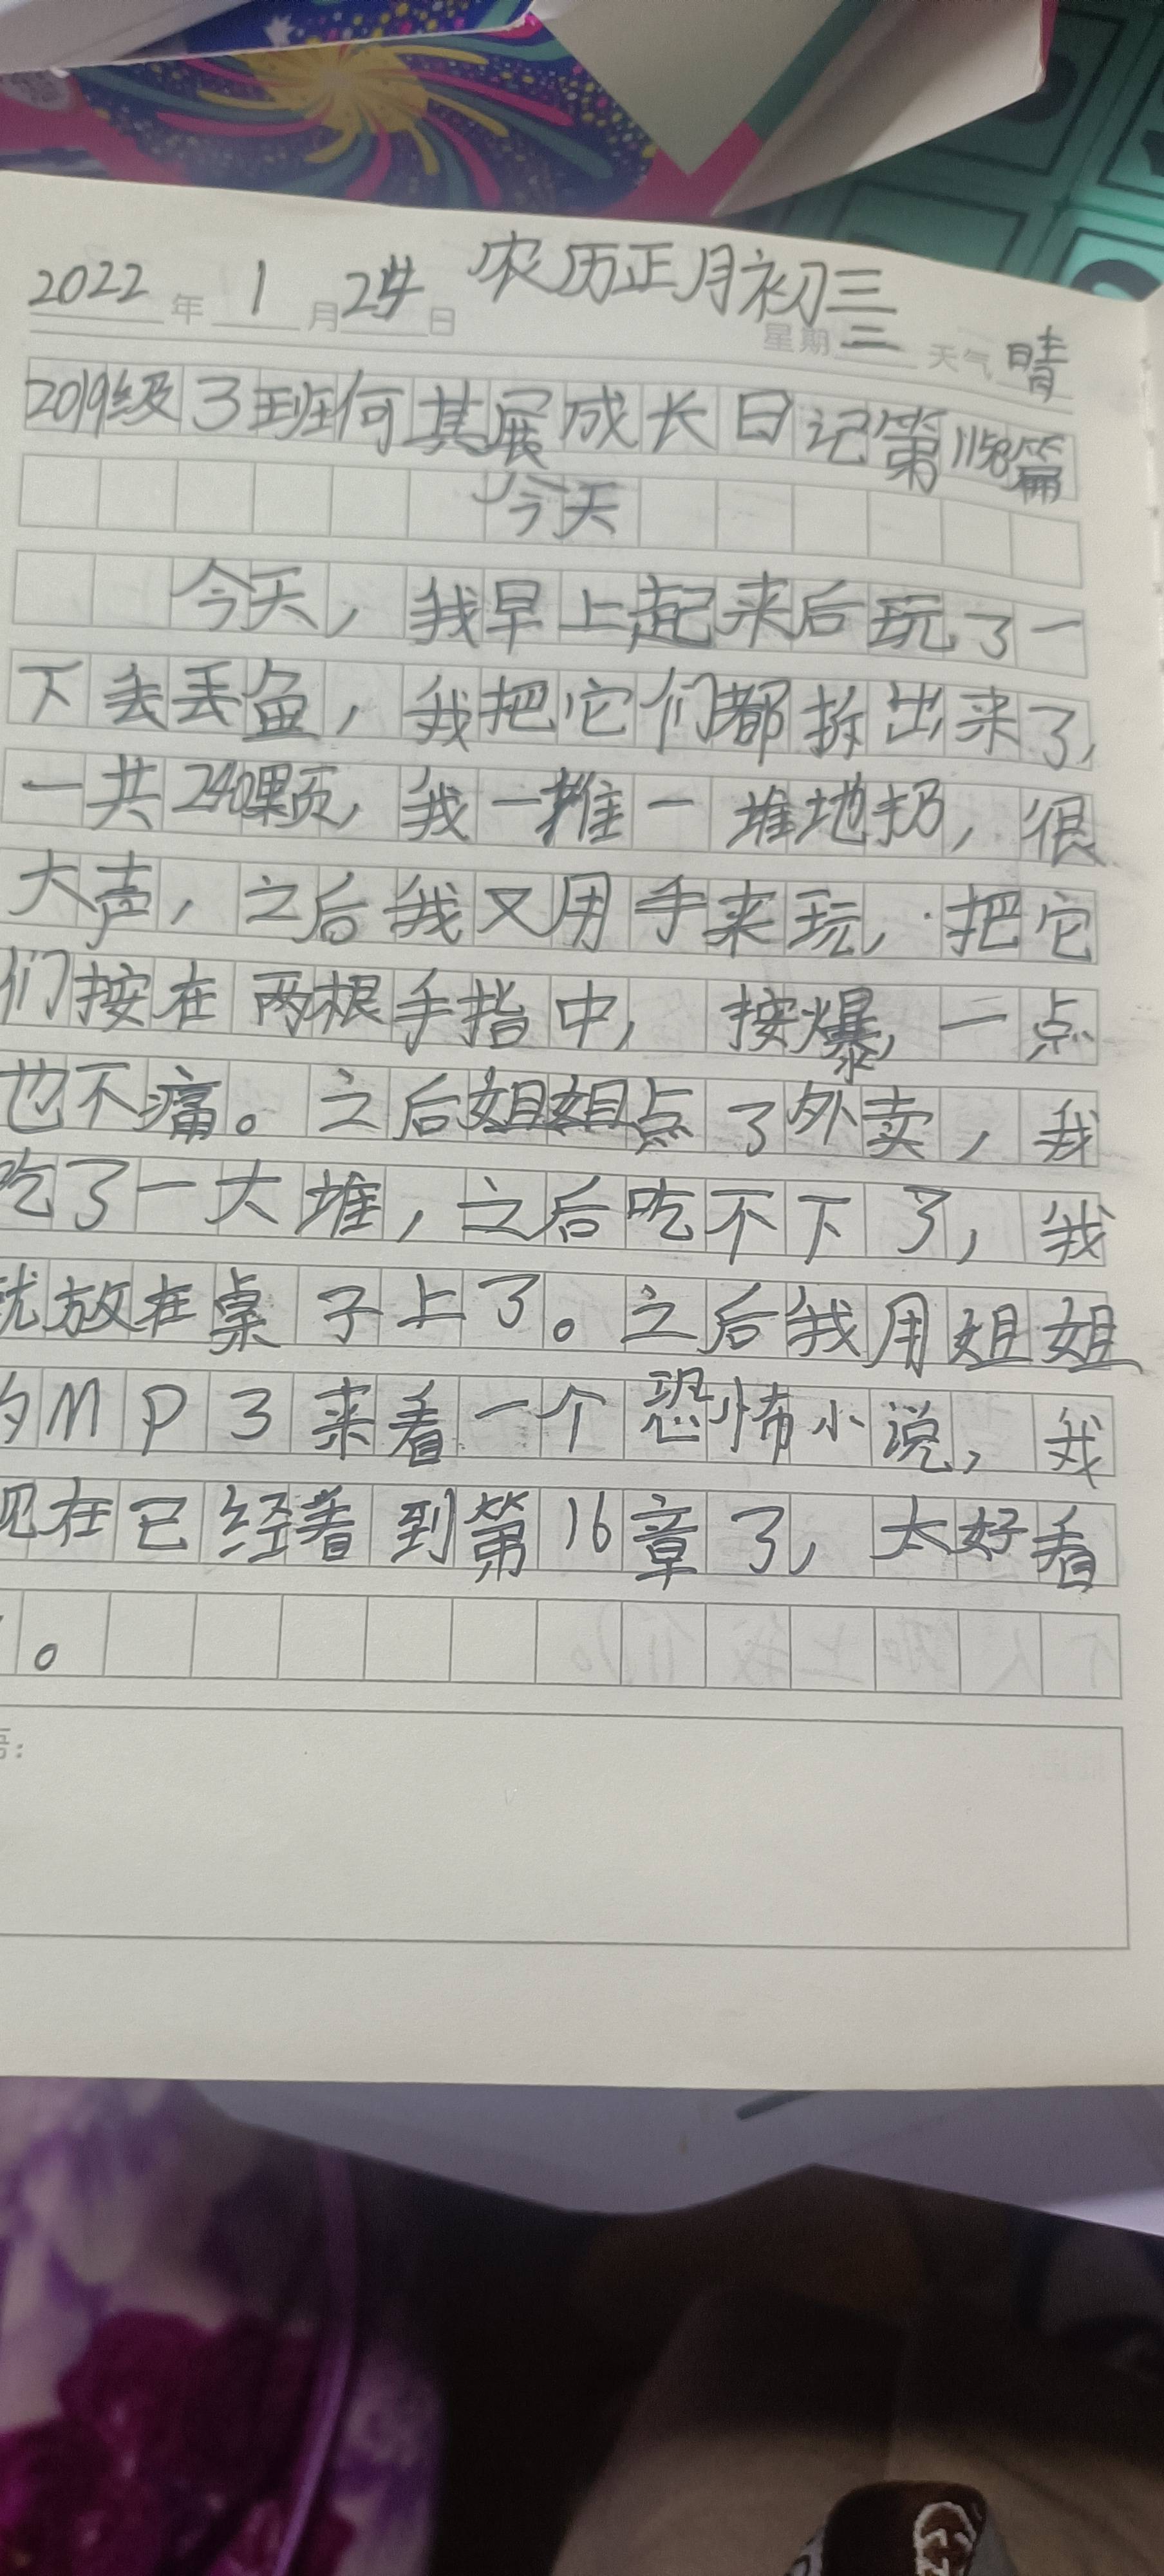 2022年1月24日 农历正月初三
星期二 天气晴
2019级3班何其展成长日记第1158篇
今天
今天，我早上起来后玩了一
下丢丢鱼，我把它们都拆出来了，
一共240颗，我一推一堆地扔，很
大声，之后我又用手来玩，把它
们按在两根手指中，按爆，一点
也不痛。之后姐姐点了外卖，我
吃了一大堆，之后吃不下了，我
就放在桌子上了。之后我用姐姐
的MP3来看一个恐怖小说，我
现在已经看到第16章了，太好看
。
语：